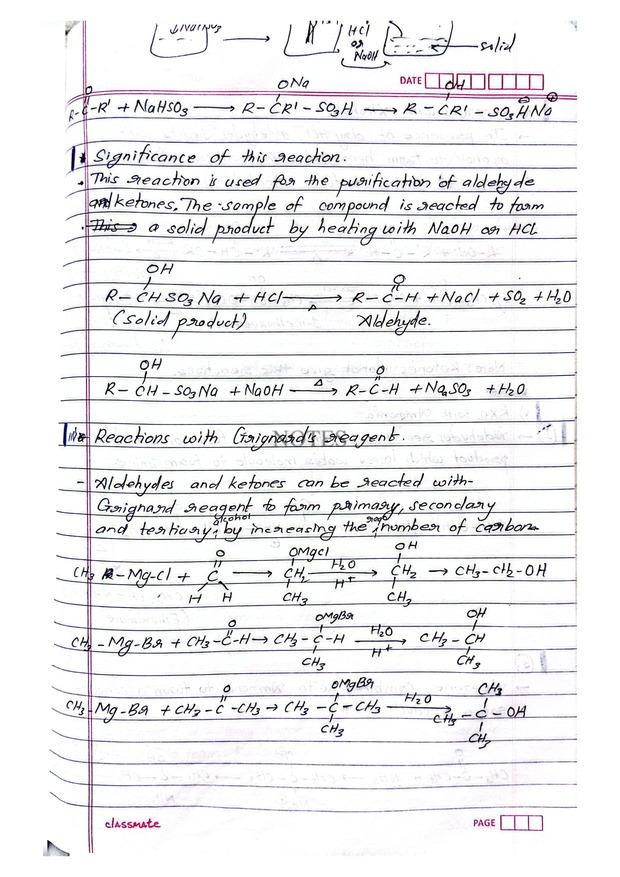 ↓NaHSO₃ → HCl
or
NaOH
solid
DATE
O ONa OH
R-C-R' + NaHSO₃ → R-CR'-SO₃H → R-CR'-SO₃HNa
* Significance of this reaction.
• This reaction is used for the purification of aldehyde
and ketones. The sample of compound is reacted to form
• This a solid product by heating with NaOH or HCl
OH O
R-CHSO₃Na + HCl →Δ R-C-H + NaCl + SO₂ + H₂O
(Solid product) Aldehyde.
OH O
R-CH-SO₃Na + NaOH →Δ R-C-H + Na₂SO₃ + H₂O
Reactions with Grignard's reagent.
NOTES
- Aldehydes and ketones can be reacted with
Grignard reagent to form primary, secondary
and tertiary alcohol by increasing the number of carbon
O OMgCl OH
CH₃ R-Mg-Cl + C → CH₂ H₂O/H⁺ → CH₂ → CH₃-CH₂-OH
H H CH₃ CH₃
O OMgBr OH
CH₃-Mg-Br + CH₃-C-H → CH₃-C-H H₂O/H⁺ → CH₃-CH
CH₃ CH₃
O OMgBr CH₃
CH₃-Mg-Br + CH₃-C-CH₃ → CH₃-C-CH₃ H₂O → CH₃-C-OH
CH₃ CH₃
classmate
PAGE